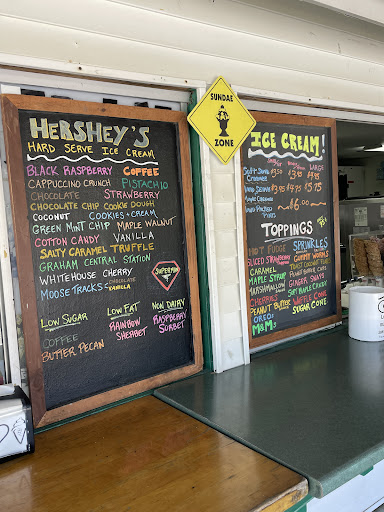 HERSHEY'S
HARD SERVE ICE CREAM
BLACK RASPBERRY COFFEE
CAPPUCCINO CRUNCH PISTACHIO
CHOCOLATE STRAWBERRY
CHOCOLATE CHIP COOKIE DOUGH
COCONUT COOKIES + CREAM
GREEN MINT CHIP MAPLE WALNUT
COTTON CANDY VANILLA
SALTY CARAMEL TRUFFLE
GRAHAM CENTRAL STATION
WHITEHOUSE CHERRY
MOOSE TRACKS - CHOCOLATE
VANILLA
SUPERMAN
LOW SUGAR
COFFEE
BUTTER PECAN
LOW FAT
RAINBOW
SHERBET
NON DAIRY
RASPBERRY
SORBET
SUNDAE
ZONE
ICE CREAM!
LARGE
SOFT SERVE
HARD SERVE
TOPPINGS
HOT FUDGE
SLICED STRAWBERRY
CARAMEL
MAPLE SYRUP
MARSHMALLOW
CHERRIES
PEANUT BUTTER
OREOS
M&MS
SPRINKLES
GUMMY WORMS
TOAST COCONUT
PEANUT BUTTER CUPS
GINGER SNAPS
WAFFLE CONE
SUGAR CONE